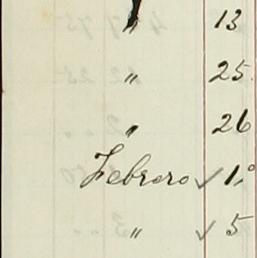 " 13
" 25
" 26
Febrero ✓ 1.º
" ✓ 5